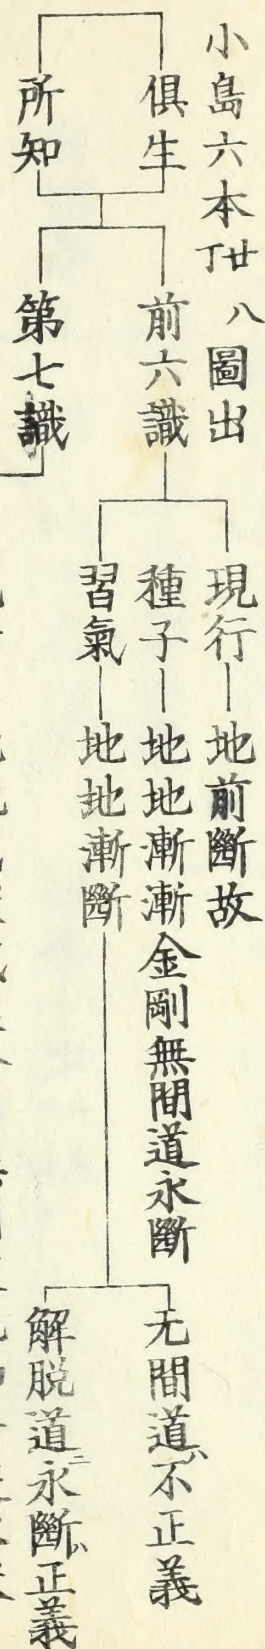 小島六本廿八丁圖出
俱生
所知
前六識
第七識
現行｜地前斷故
種子｜地地漸漸金剛無間道永斷
習氣｜地地漸斷
无間道ハ不正義
解脱道ニ永斷ハ正義